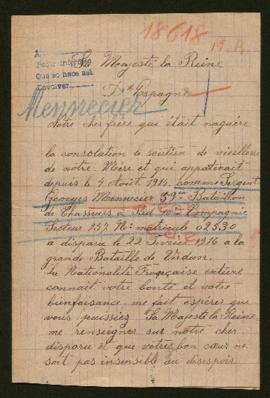 18618
Sa Majesté la Reine
D'Espagne
Mennecier
Notre cher frère qui était naguère
la consolation le soutien de vieillesse
de notre Mère et qui appartenait
depuis le 4 Août 1914 comme Sergent
Georges Mennecier 59e Bataillon
de Chasseurs à Pied Compagnie
Secteur 137 No matricule 02530
a disparu le 22 Février 1916 à la
grande Bataille de Verdun.
La Nationalité Française entière
connaît votre bonté et votre
bienfaisance, me fait espérer que
vous puissiez Sa Majesté la Reine
me renseigner sur notre cher
disparu et que votre bon cœur ne
soit pas insensible au désespoir